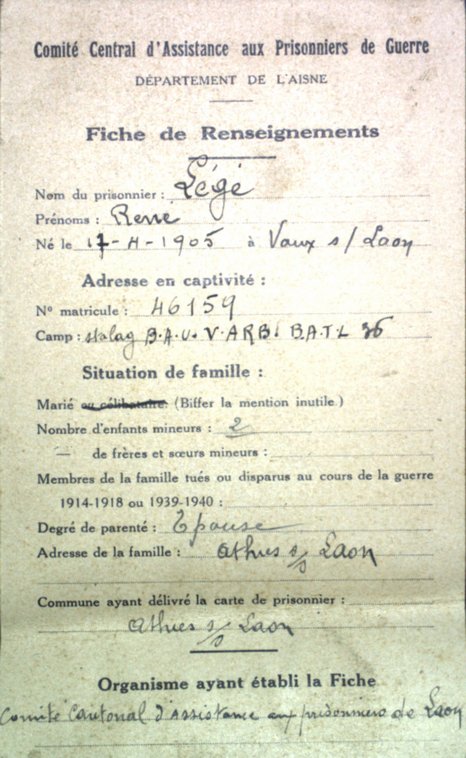 Comité Central d'Assistance aux Prisonniers de Guerre
DÉPARTEMENT DE L'AISNE
Fiche de Renseignements
Nom du prisonnier : Légé
Prénoms : René
Né le 17-4-1905 à Vaux s/ Laon
Adresse en captivité :
N° matricule : 46159
Camp : stalag B.A.U. V. ARB. B.A.T.L 36
Situation de famille :
Marié ou célibataire (Biffer la mention inutile.)
Nombre d'enfants mineurs : 2
— de frères et sœurs mineurs :
Membres de la famille tués ou disparus au cours de la guerre
1914-1918 ou 1939-1940 :
Degré de parenté : Epouse
Adresse de la famille : Athies s/s Laon
Commune ayant délivré la carte de prisonnier :
Athies s/s Laon
Organisme ayant établi la Fiche
Comité Cantonal d'Assistance aux prisonniers de Laon